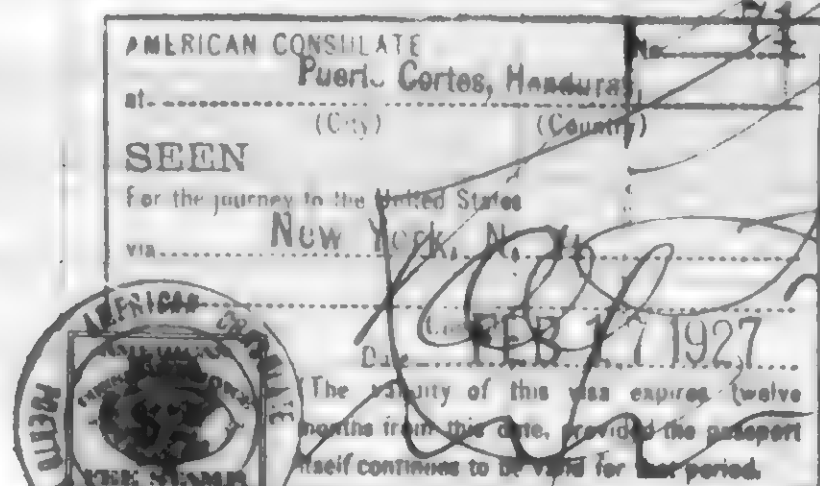 AMERICAN CONSULATE
No.
at Puerto Cortes, Honduras,
(City) (Country)
SEEN
For the journey to the United States
via New York, N. Y.
Date FEB 17 1927
(The validity of this visa expires twelve
months from this date, provided the passport
itself continues to be valid for that period.
AMERICAN CONSULATE
PUERTO
FEE STAMP